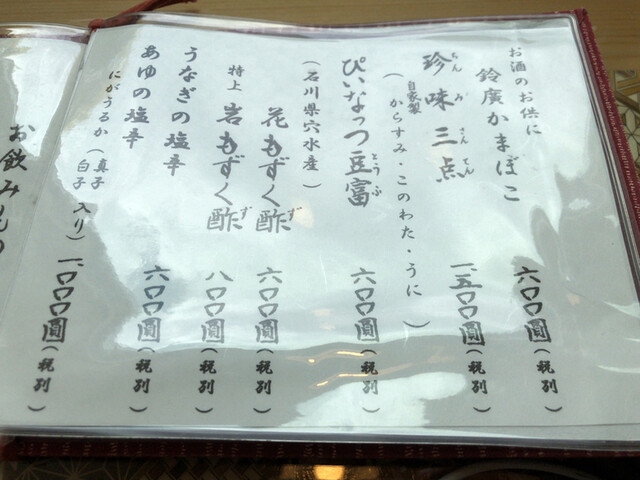 お酒のお供に
鈴廣かまぼこ 六〇〇圓(税別)
珍味三点 一、五〇〇圓(税別)
ちんみさんてん
自家製
(からすみ・このわた・うに)
ぴいなっつ豆富 六〇〇圓(税別)
とうふ
(石川県穴水産)
花もずく酢 六〇〇圓(税別)
ず
特上 岩もずく酢 八〇〇圓(税別)
ず
うなぎの塩辛 六〇〇圓(税別)
あゆの塩辛
にがうるか(真子 白子 入り) 一、〇〇〇圓(税別)
お飲みもの